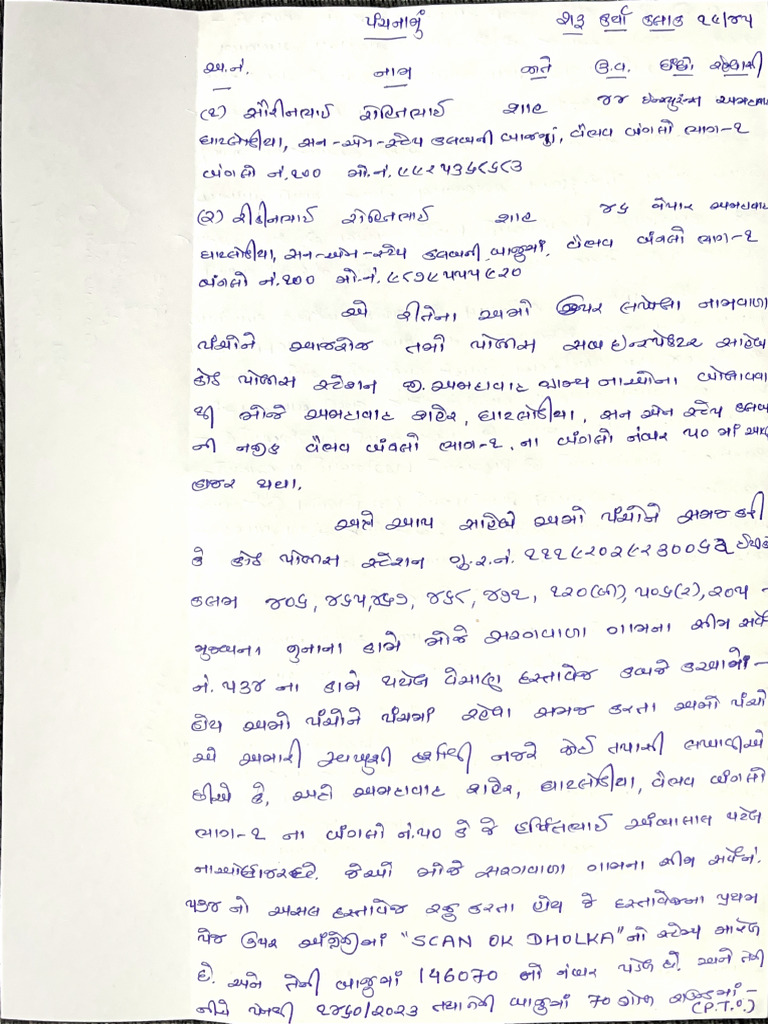 પંચનામું શરૂ કર્યા કલાક ૧૯/૪૫
અ.નં. નામ જાતે ઉ.વ. ધંધો રહેવાસી
(૧) સૌરીનભાઈ રોહિતભાઈ શાહ ૪૪ ઇન્સ્યુરન્સ અમદાવાદ
ઘાટલોડીયા, સન-એન-સ્ટેપ કલબની બાજુમાં, વૈભવ બંગલો ભાગ-૧
બંગલો નં.૧૦૦ મો.નં. ૯૯૨૫૩૬૮૬૮૩
(૨) રીકીનભાઈ રોહિતભાઈ શાહ ૪૬ વેપાર અમદાવાદ
ઘાટલોડીયા, સન-એન-સ્ટેપ કલબની બાજુમાં, વૈભવ બંગલો ભાગ-૧
બંગલો નં.૧૦૦ મો.નં. ૯૮૭૯૫૫૫૯૨૦
એ રીતેના અમો ઉપર લખેલા નામવાળા
પંચોને આજરોજ તમો પોલીસ સબ ઇન્સ્પેક્ટર સાહેબ
કોઠ પોલીસ સ્ટેશન જી. અમદાવાદ ગ્રામ્ય નાઓના બોલાવવા
થી મોજે અમદાવાદ શહેર, ઘાટલોડીયા, સન એન સ્ટેપ કલબ
ની નજીક વૈભવ બંગલો ભાગ-૧. ના બંગલો નંબર ૫૦ માં
હાજર થયા.
અત્રે આપ સાહેબે અમો પંચોને સમજ કરી
કે કોઠ પોલીસ સ્ટેશન ગુ.ર.નં. ૧૧૧૯૨૦૨૯૨૩૦૦૬૩ ઈપીકો
કલમ ૪૦૬, ૪૬૫,૪૬૭, ૪૬૮, ૪૭૧, ૧૨૦(બી), ૫૦૬(૨), ૨૦૫ -
મુજબના ગુનાના કામે મોજે સરગવાળા ગામના સીમ સર્વે
નં. ૫૩૪ ના કામે થયેલ વેચાણ દસ્તાવેજ કબજે કરવાનો-
હોય અમો પંચોને પંચમાં રહેવા સમજ કરતા અમો પંચો
એ અમારી સ્વખુશી નજરે જોઈ તપાસી લખાવીએ
છીએ કે, અત્રે અમદાવાદ શહેર, ઘાટલોડીયા, વૈભવ બંગલો
ભાગ-૧ ના બંગલો નં.૫૦ કે જે હર્ષિતભાઈ અંબાલાલ પટેલ
નાઓ હાજર છે. જેઓ મોજે સરગવાળા ગામના સીમ સર્વે નં.
૫૩૪ નો અસલ દસ્તાવેજ રજુ કરતા હોય જે દસ્તાવેજના પ્રથમ
પેજ ઉપર અંગ્રેજીમાં "SCAN OK DHOLKA" નો સ્ટેમ્પ મારેલ
છે. અને તેની બાજુમાં 146070 નો નંબર પડેલ છે. અને તેની
નીચે ૧૪૬૦/૨૦૨૩ તથા તેની બાજુમાં 70 ગોળ રાઉન્ડમાં-
(P.T.O.)